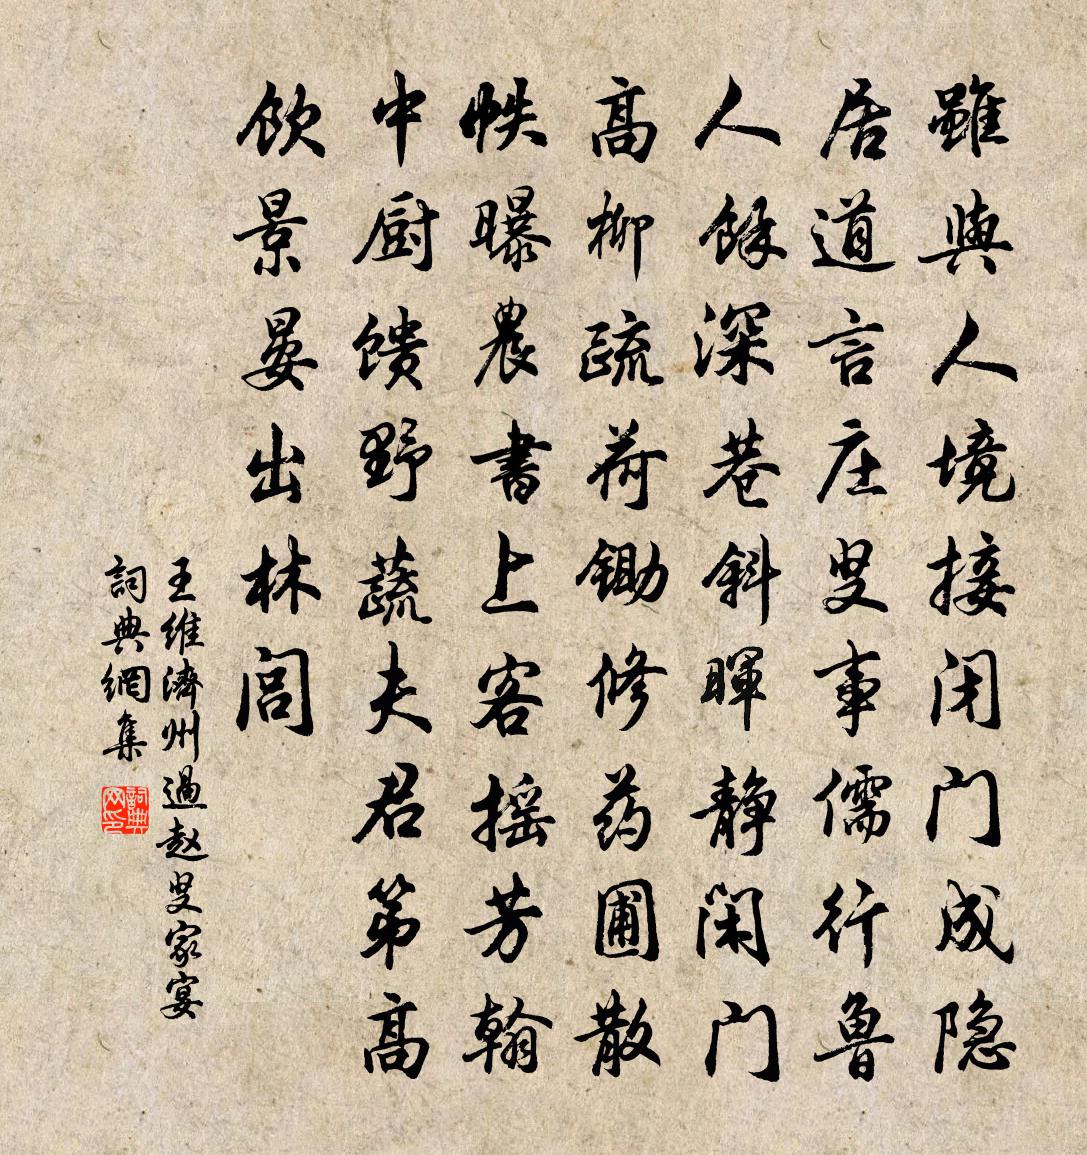 雖與人境接闭门成隐
居道言庄叟事儒行鲁
人餘深巷斜暉静閑门
高柳疏荷锄修药圃散
帙曝農書上客摇芳翰
中厨馈野蔬夫君第高
飲景晏出林闾
王維濟州過赵叟家宴
詞典網集
詞典网印